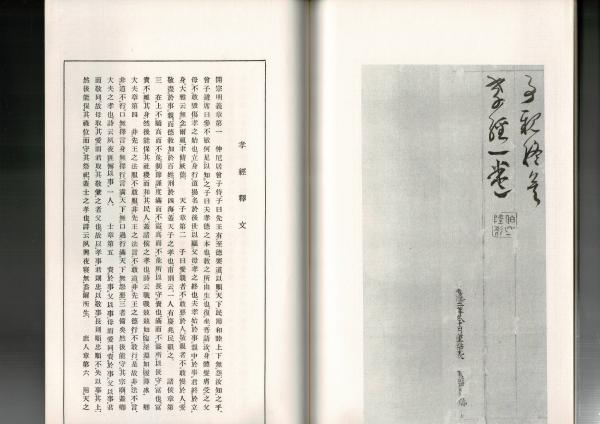 孝經一卷
孝經釋文
開宗明義章第一　仲尼居曾子侍子曰先王有至德要道以順天下民用和睦上下無怨汝知之乎、
曾子避席曰參不敏何足以知之子曰夫孝德之本也敎之所由生也復坐吾語汝身體髮膚受之父
母不敢毀傷孝之始也立身行道揚名於後世以顯父母孝之終也夫孝始於事親中於事君終於立
身大雅云無念爾祖聿脩厥德、　天子章第二　子曰愛親者不敢惡於人敬親者不敢慢於人愛
敬盡於事親而德敎加於百姓刑於四海蓋天子之孝也甫刑云一人有慶兆民賴之、　諸侯章第
三　在上不驕高而不危制節謹度滿而不溢高而不危所以長守貴也滿而不溢所以長守富也富
貴不離其身然後能保其社稷而和其民人蓋諸侯之孝也詩云戰戰兢兢如臨深淵如履薄冰、　卿
大夫章第四　非先王之法服不敢服非先王之法言不敢道非先王之德行不敢行是故非法不言、
非道不行口無擇言身無擇行言滿天下無口過行滿天下無怨惡三者備矣然後能守其宗廟蓋卿
大夫之孝也詩云夙夜匪懈以事一人、　士章第五　資於事父以事母而愛同資於事父以事君
而敬同故母取其愛而君取其敬兼之者父也故以孝事君則忠以敬事長則順忠順不失以事其上、
然後能保其祿位而守其祭祀蓋士之孝也詩云夙興夜寐無忝爾所生、　庶人章第六　用天之